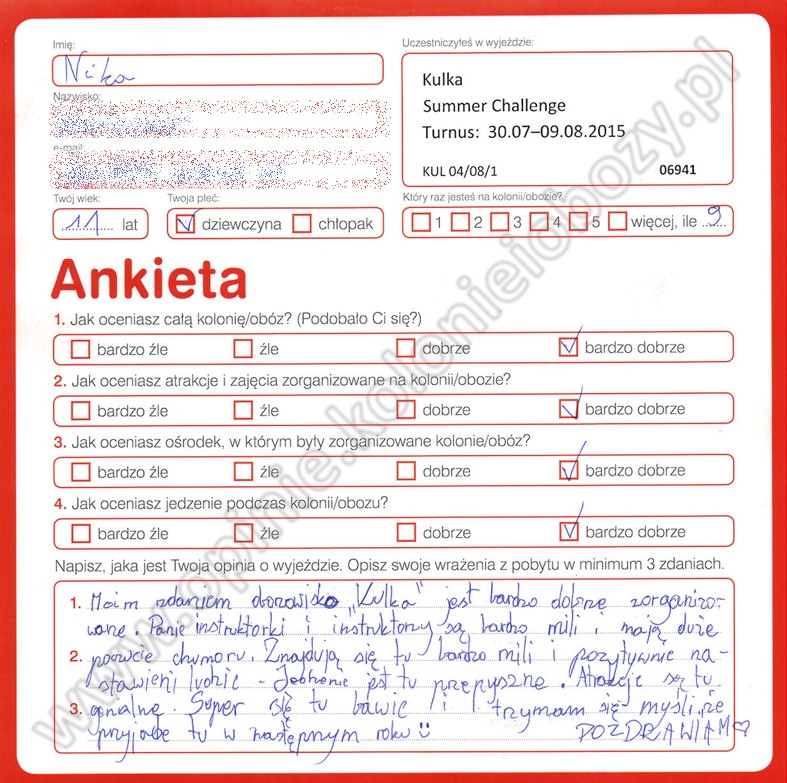 Imię:
Nika
Uczestniczyłeś w wyjeździe:
Kulka
Summer Challenge
Turnus: 30.07–09.08.2015
KUL 04/08/1 06941
Nazwisko:
e-mail:
Twój wiek:
11 lat
Twoja płeć:
dziewczyna chłopak
Który raz jesteś na kolonii/obozie?
1 2 3 4 5 więcej, ile 9
Ankieta
1. Jak oceniasz całą kolonię/obóz? (Podobało Ci się?)
bardzo źle źle dobrze bardzo dobrze
2. Jak oceniasz atrakcje i zajęcia zorganizowane na kolonii/obozie?
bardzo źle źle dobrze bardzo dobrze
3. Jak oceniasz ośrodek, w którym były zorganizowane kolonie/obóz?
bardzo źle źle dobrze bardzo dobrze
4. Jak oceniasz jedzenie podczas kolonii/obozu?
bardzo źle źle dobrze bardzo dobrze
Napisz, jaka jest Twoja opinia o wyjeździe. Opisz swoje wrażenia z pobytu w minimum 3 zdaniach.
1. Moim zdaniem obozowisko „Kulka" jest bardzo dobrze zorganizo-
wane. Panie instruktorki i instruktorzy są bardzo mili i mają duże
2. poczucie chumoru. Znajdują się tu bardzo mili i pozytywnie na-
stawieni ludzie - Jedzenie jest tu przepyszne. Atrakcje są tu
3. genialne. Super się tu bawię i trzymam się myśli, że
przyjadę tu w następnym roku
POZDRAWIAM
www.opinie.kolonieiobozy.pl